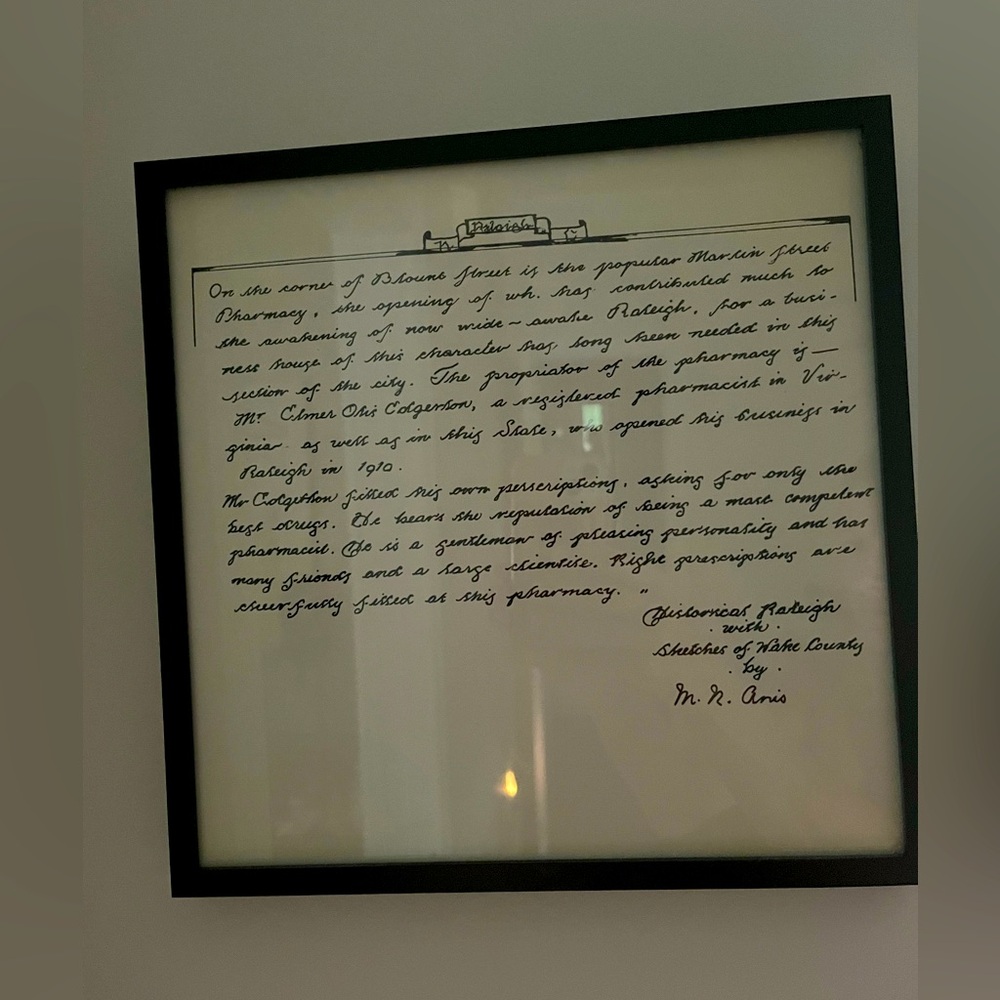 N. Raleigh C.
On the corner of Blount Street is the popular Martin Street
Pharmacy, the opening of wh. has contributed much to
the awakening of now wide-awake Raleigh, for a busi-
ness house of this character has long been needed in this
section of the city. The propriator of the pharmacy is —
Mr Elmer Otis Edgerton, a registered pharmacist in Vir-
ginia as well as in this State, who opened his business in
Raleigh in 1910.
Mr Edgerton filled his own perscriptions, asking for only the
best drugs. He bears the reputation of being a most competent
pharmacist. He is a gentleman of pleasing personality and has
many friends and a large clientile. Right prescriptions are
cheerfully filled at this pharmacy. "
Historical Raleigh
. with .
Sketches of Wake County
. by .
M. N. Amis